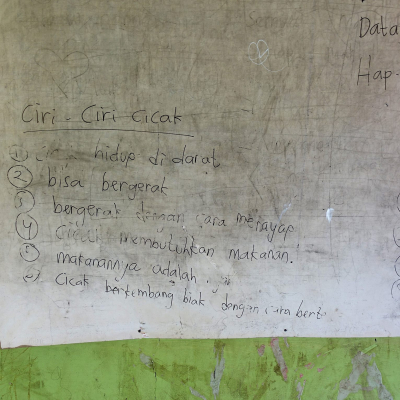 Data
Hap-
Ciri - Ciri Cicak
1 hidup di darat
2 bisa bergerak
3 bergerak dengan cara merayap
4 Cicak membutuhkan makanan.
5 makanannya adalah
6 Cicak berkembang biak dengan cara bert